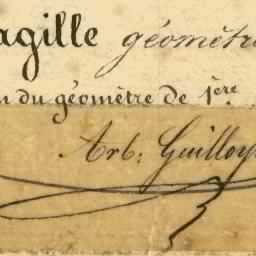 agille géomètre
n du géomètre de 1ère
Arb: Guilloy